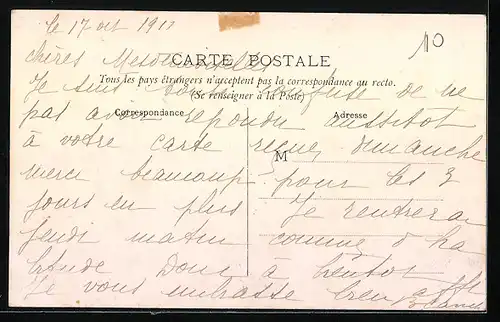 le 17 oct 1911
110
chères Mesdemoiselles
CARTE POSTALE
Tous les pays étrangers n'acceptent pas la correspondance au recto.
(Se renseigner à la Poste)
Correspondance
Adresse
M
Je suis confuse de ne
pas avoir répondu aussitôt
à votre carte reçue dimanche
merci beaucoup pour les 3
jours en plus Je rentrerai
jeudi matin comme d'ha
bitude Donc à bientôt
Je vous embrasse bien aff